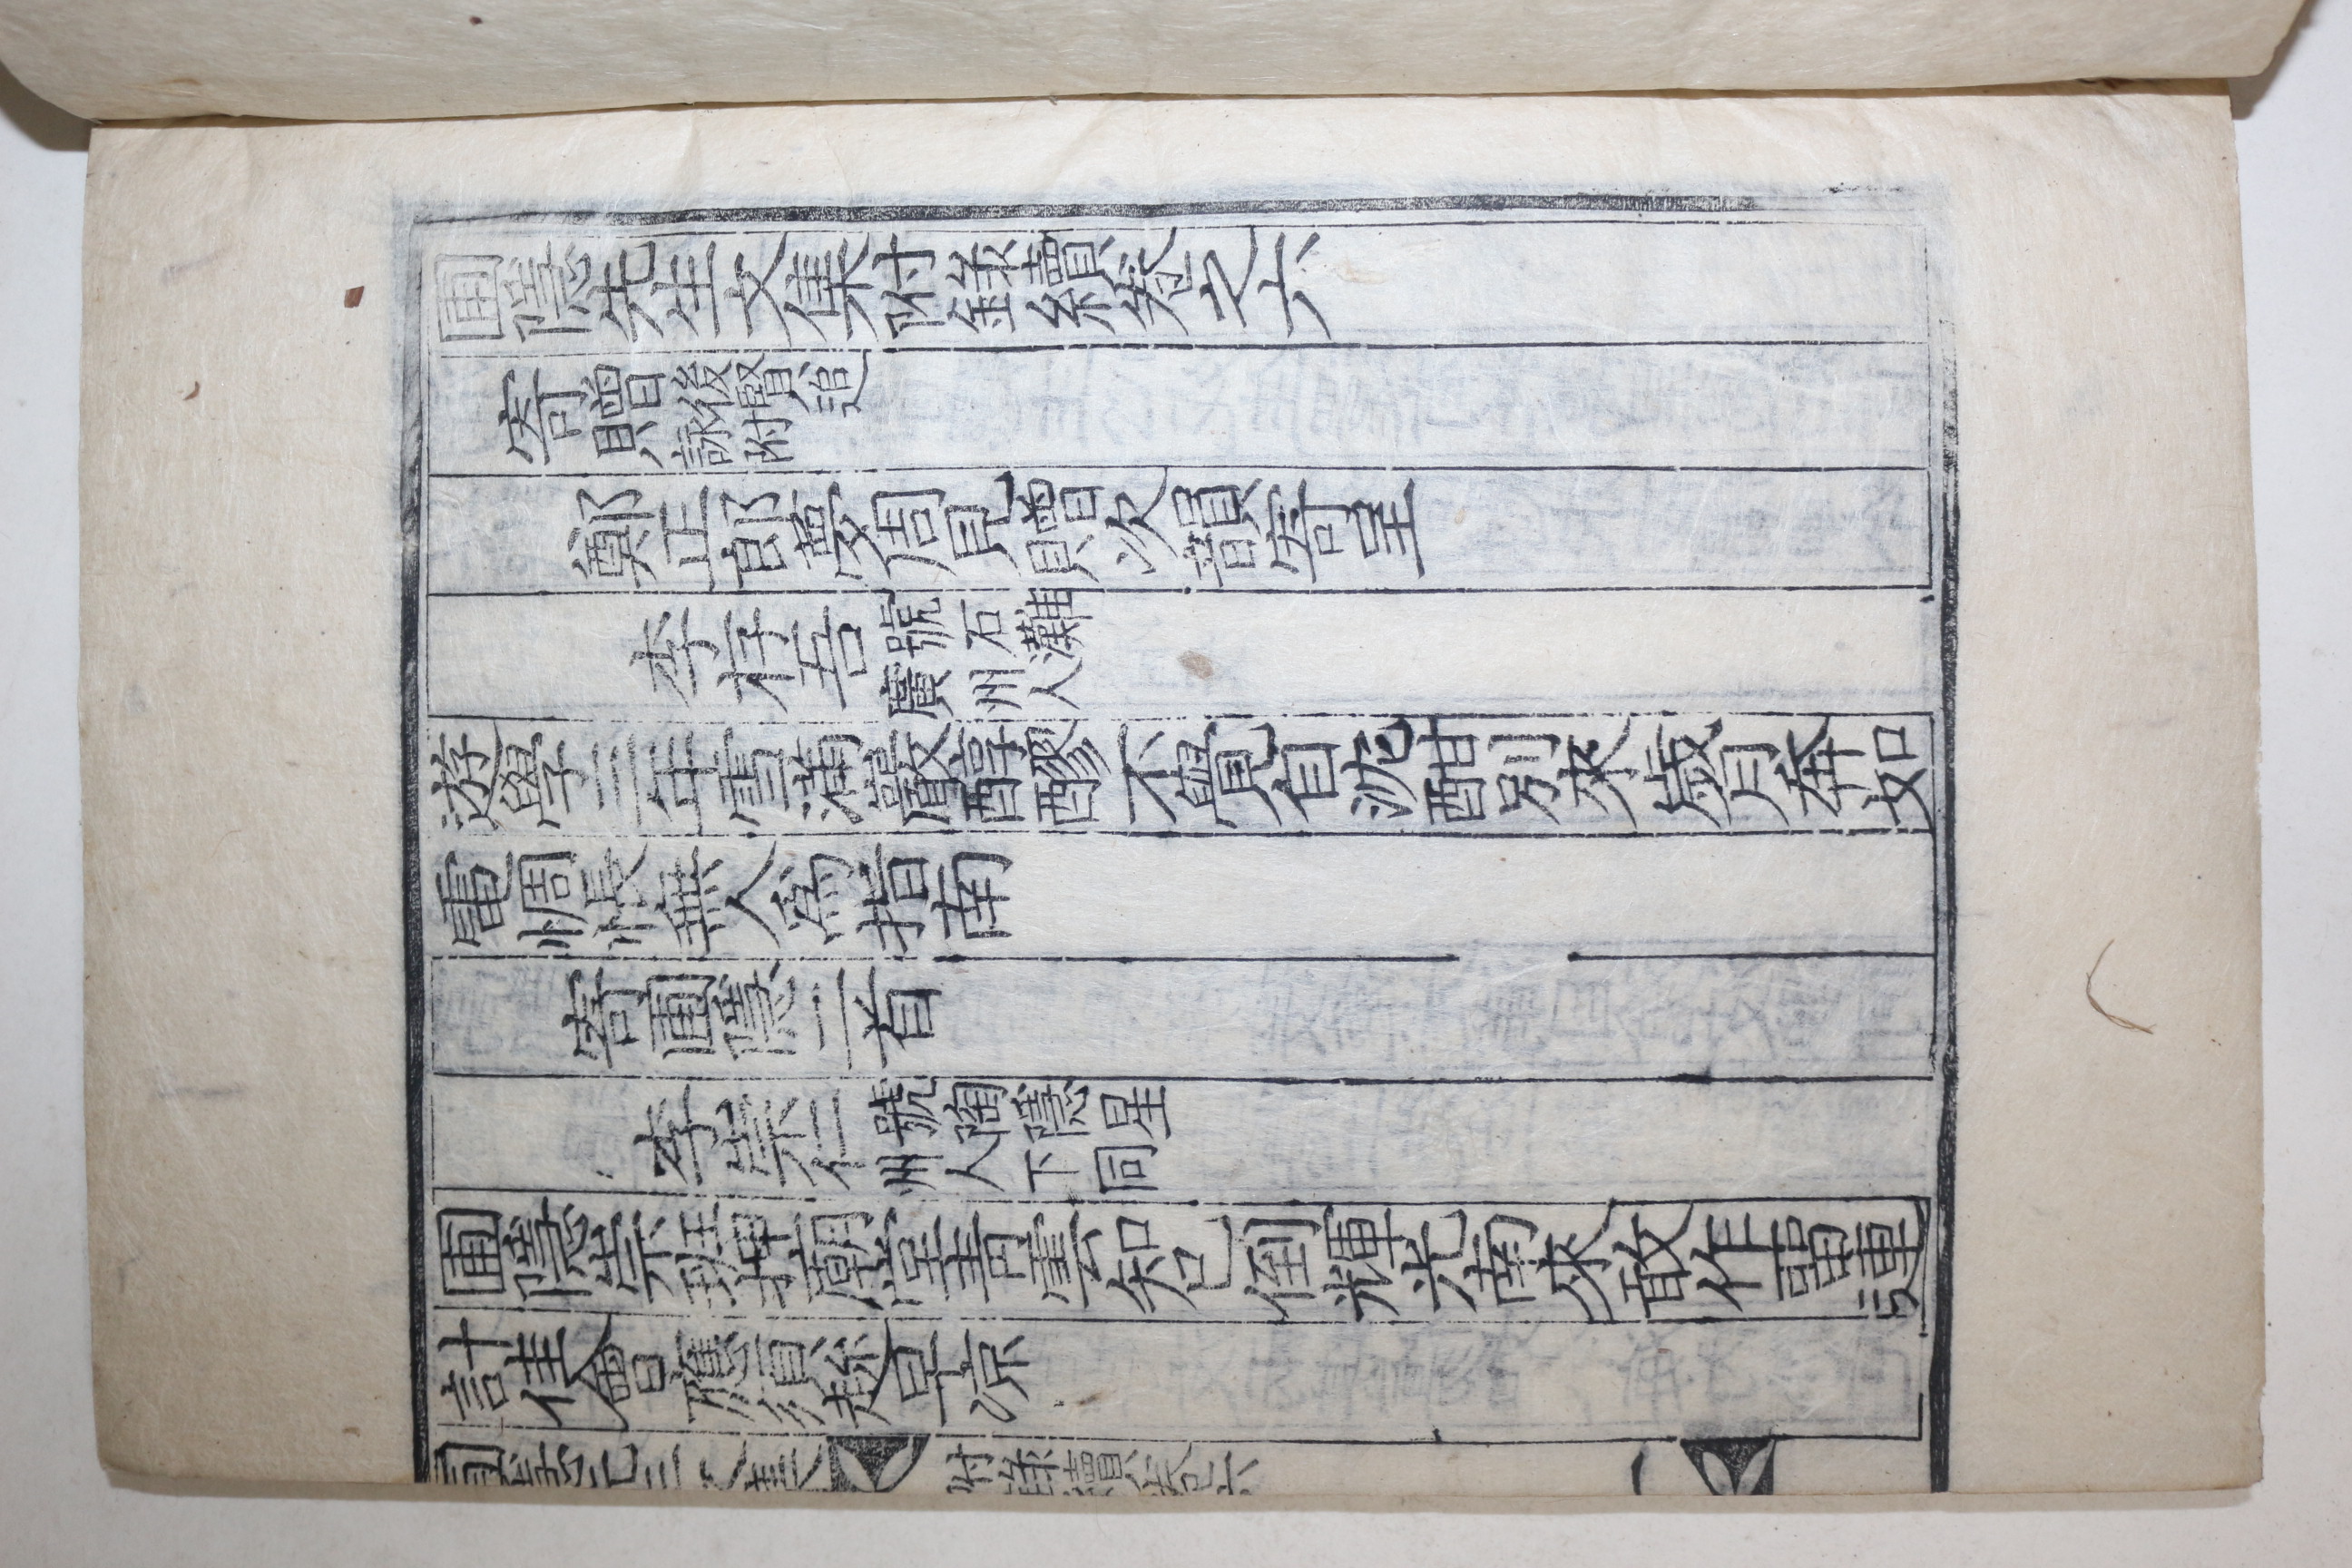 圃隱先生文集附錄續卷之六
寄贈後賢追詠附
鄭正郎夢周見贈次韻寄呈
李存吾號石灘廣州人
遊學三年雪滿巖醇醪不覺自沈酣別來歲月奔如
電惆悵無人爲指南
寄圃隱二首
李崇仁號陶隱星州人下同
圃隱崇班押廟堂靑雲知已倒輝光南來敢作畱連
計佳會應須趂早凉
圃隱先生文集
附錄續卷六
一